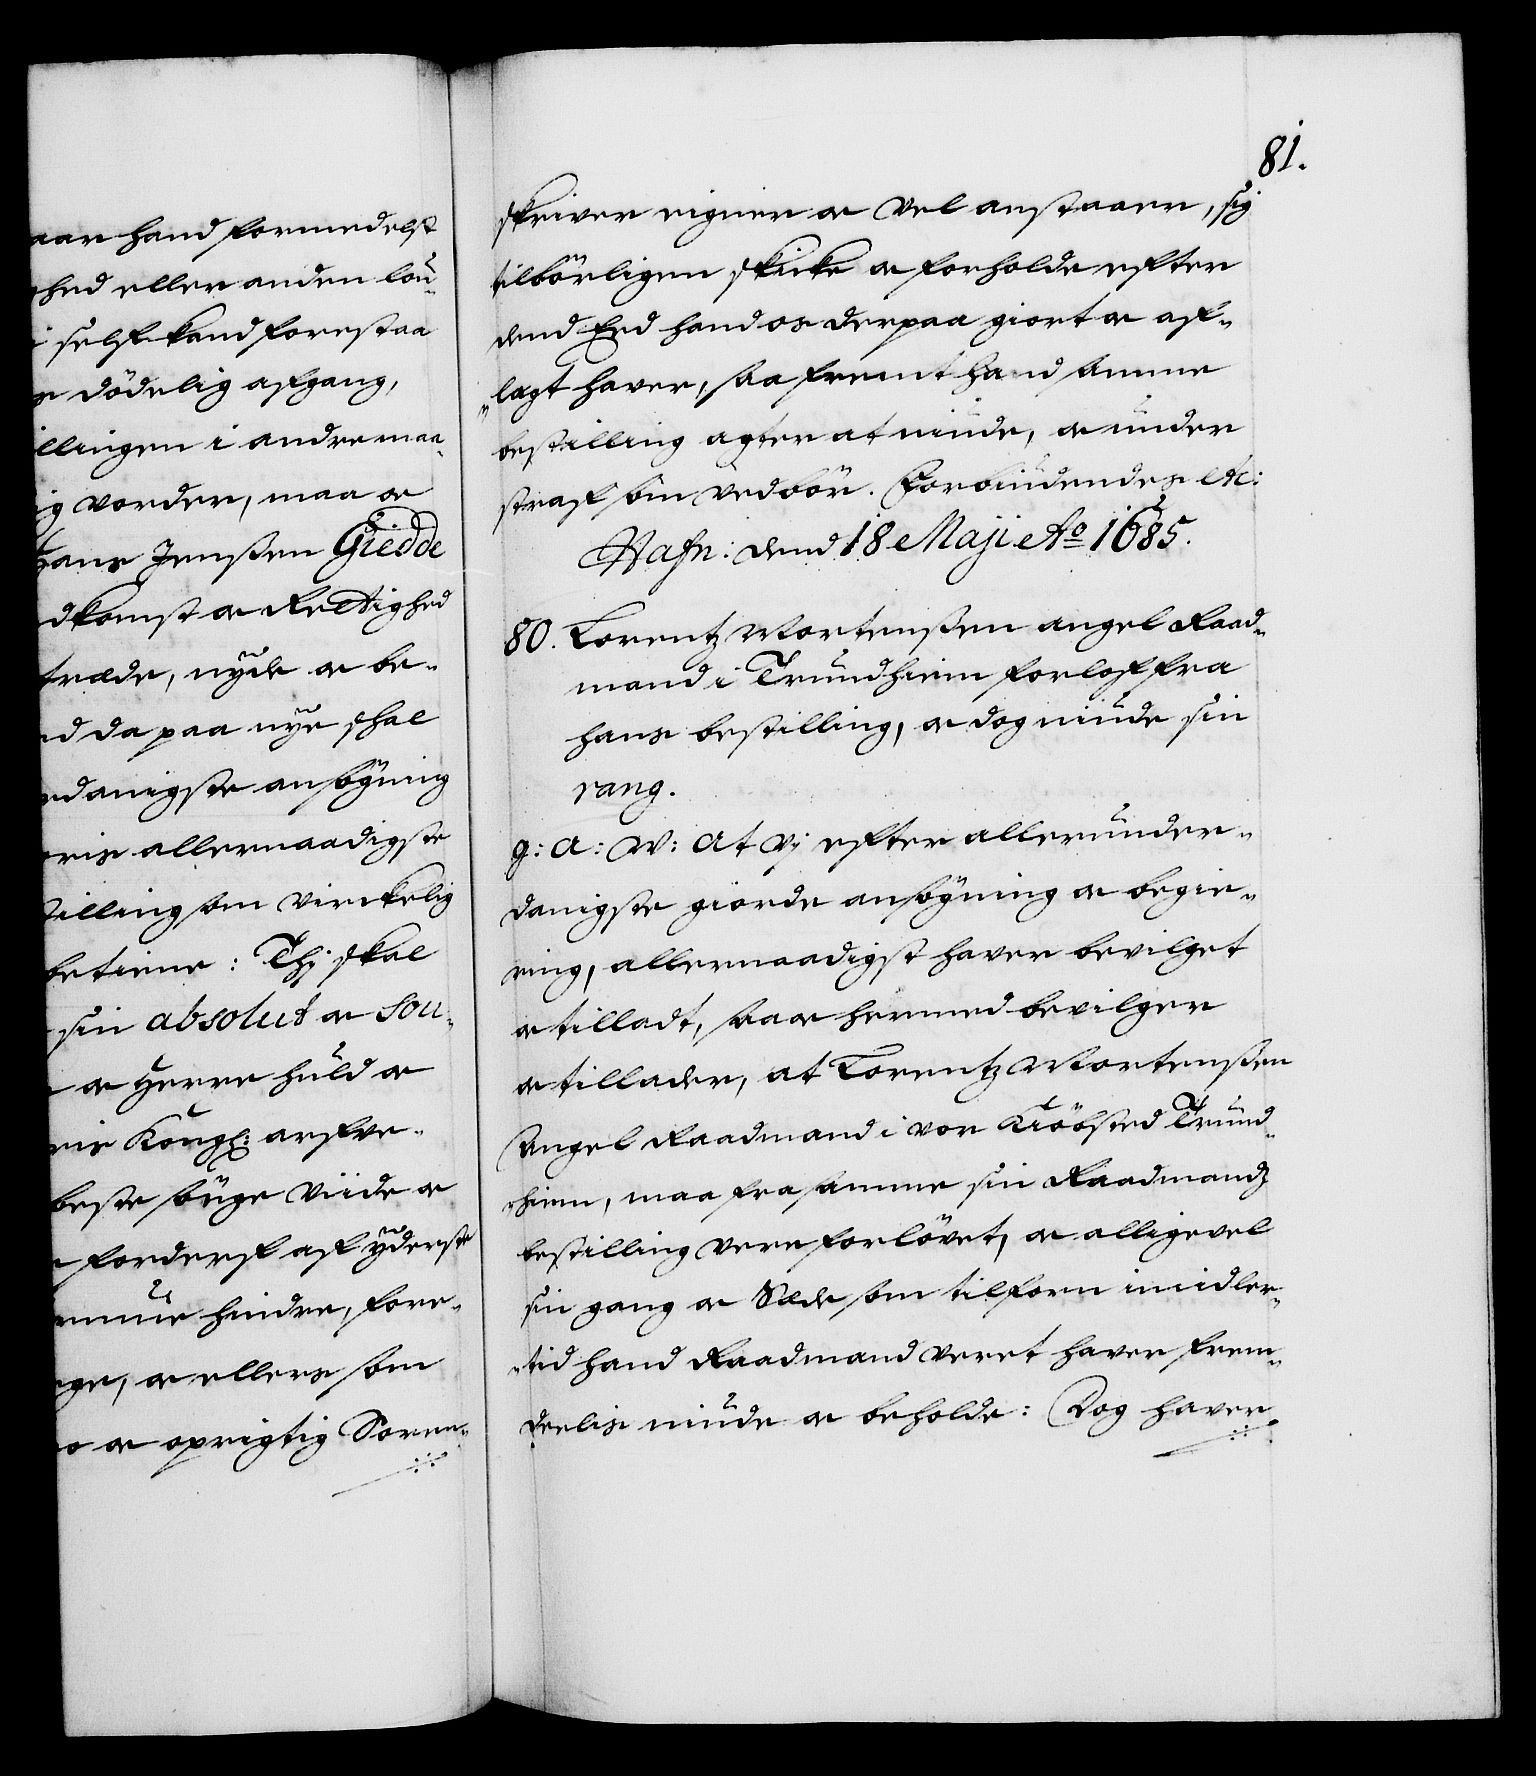 aar hand formedelst
hed eller anden lou-
i self kand forestaa
s dödelig afgang,
illingen i andre maa-
ig vorder, maa oc
Hans Jenssen Giedde
dkomst oc Rettighed
træde, nyde oc be-
d da paa nye skal
danigste ansögning
oris allernaadigste
tilling som virckelig
betiene: Thj skal
sin absolut oc Sou-
oc Herre huld oc
ris Kongl: arfve-
beste söge viide oc
forderf af yderste
muue hindre, fore-
ge, oc ellers som
o oc oprigtig Soren-
81.
skriver eigner oc vel anstaaer, sig
tilbörligen skicke oc forholde efter
dend Eed hand os derpaa giort oc af-
"lagt haver, saafremt hand samme
bestilling agter at niude, oc under
straf som vedbör. Forbiudendes etc:
Hafn: dend 18 Maji Ao 1685.
80. Lorentz Mortenssen angel Raad-
mand i Trundhiem forlof fra
hans bestilling, oc dog niude sin
rang.
g: A: W: At Vj efter allerunder-
danigste giorde ansögning oc begie-
ring, allernaadigst haver bevilget
oc tilladt, saa oc hermed bevilger
oc tillader, at Lorentz Mortenssen
Angel Raadmand i vor Kiöbsted Trund-
hiem, maa fra samme sin Raadmandz
bestilling vere forlövet, oc alligevel
sin gang oc Sæde som tilforn imidler-
tid hand Raadmand veret haver frem-
deelis niude oc beholde: Dog haver